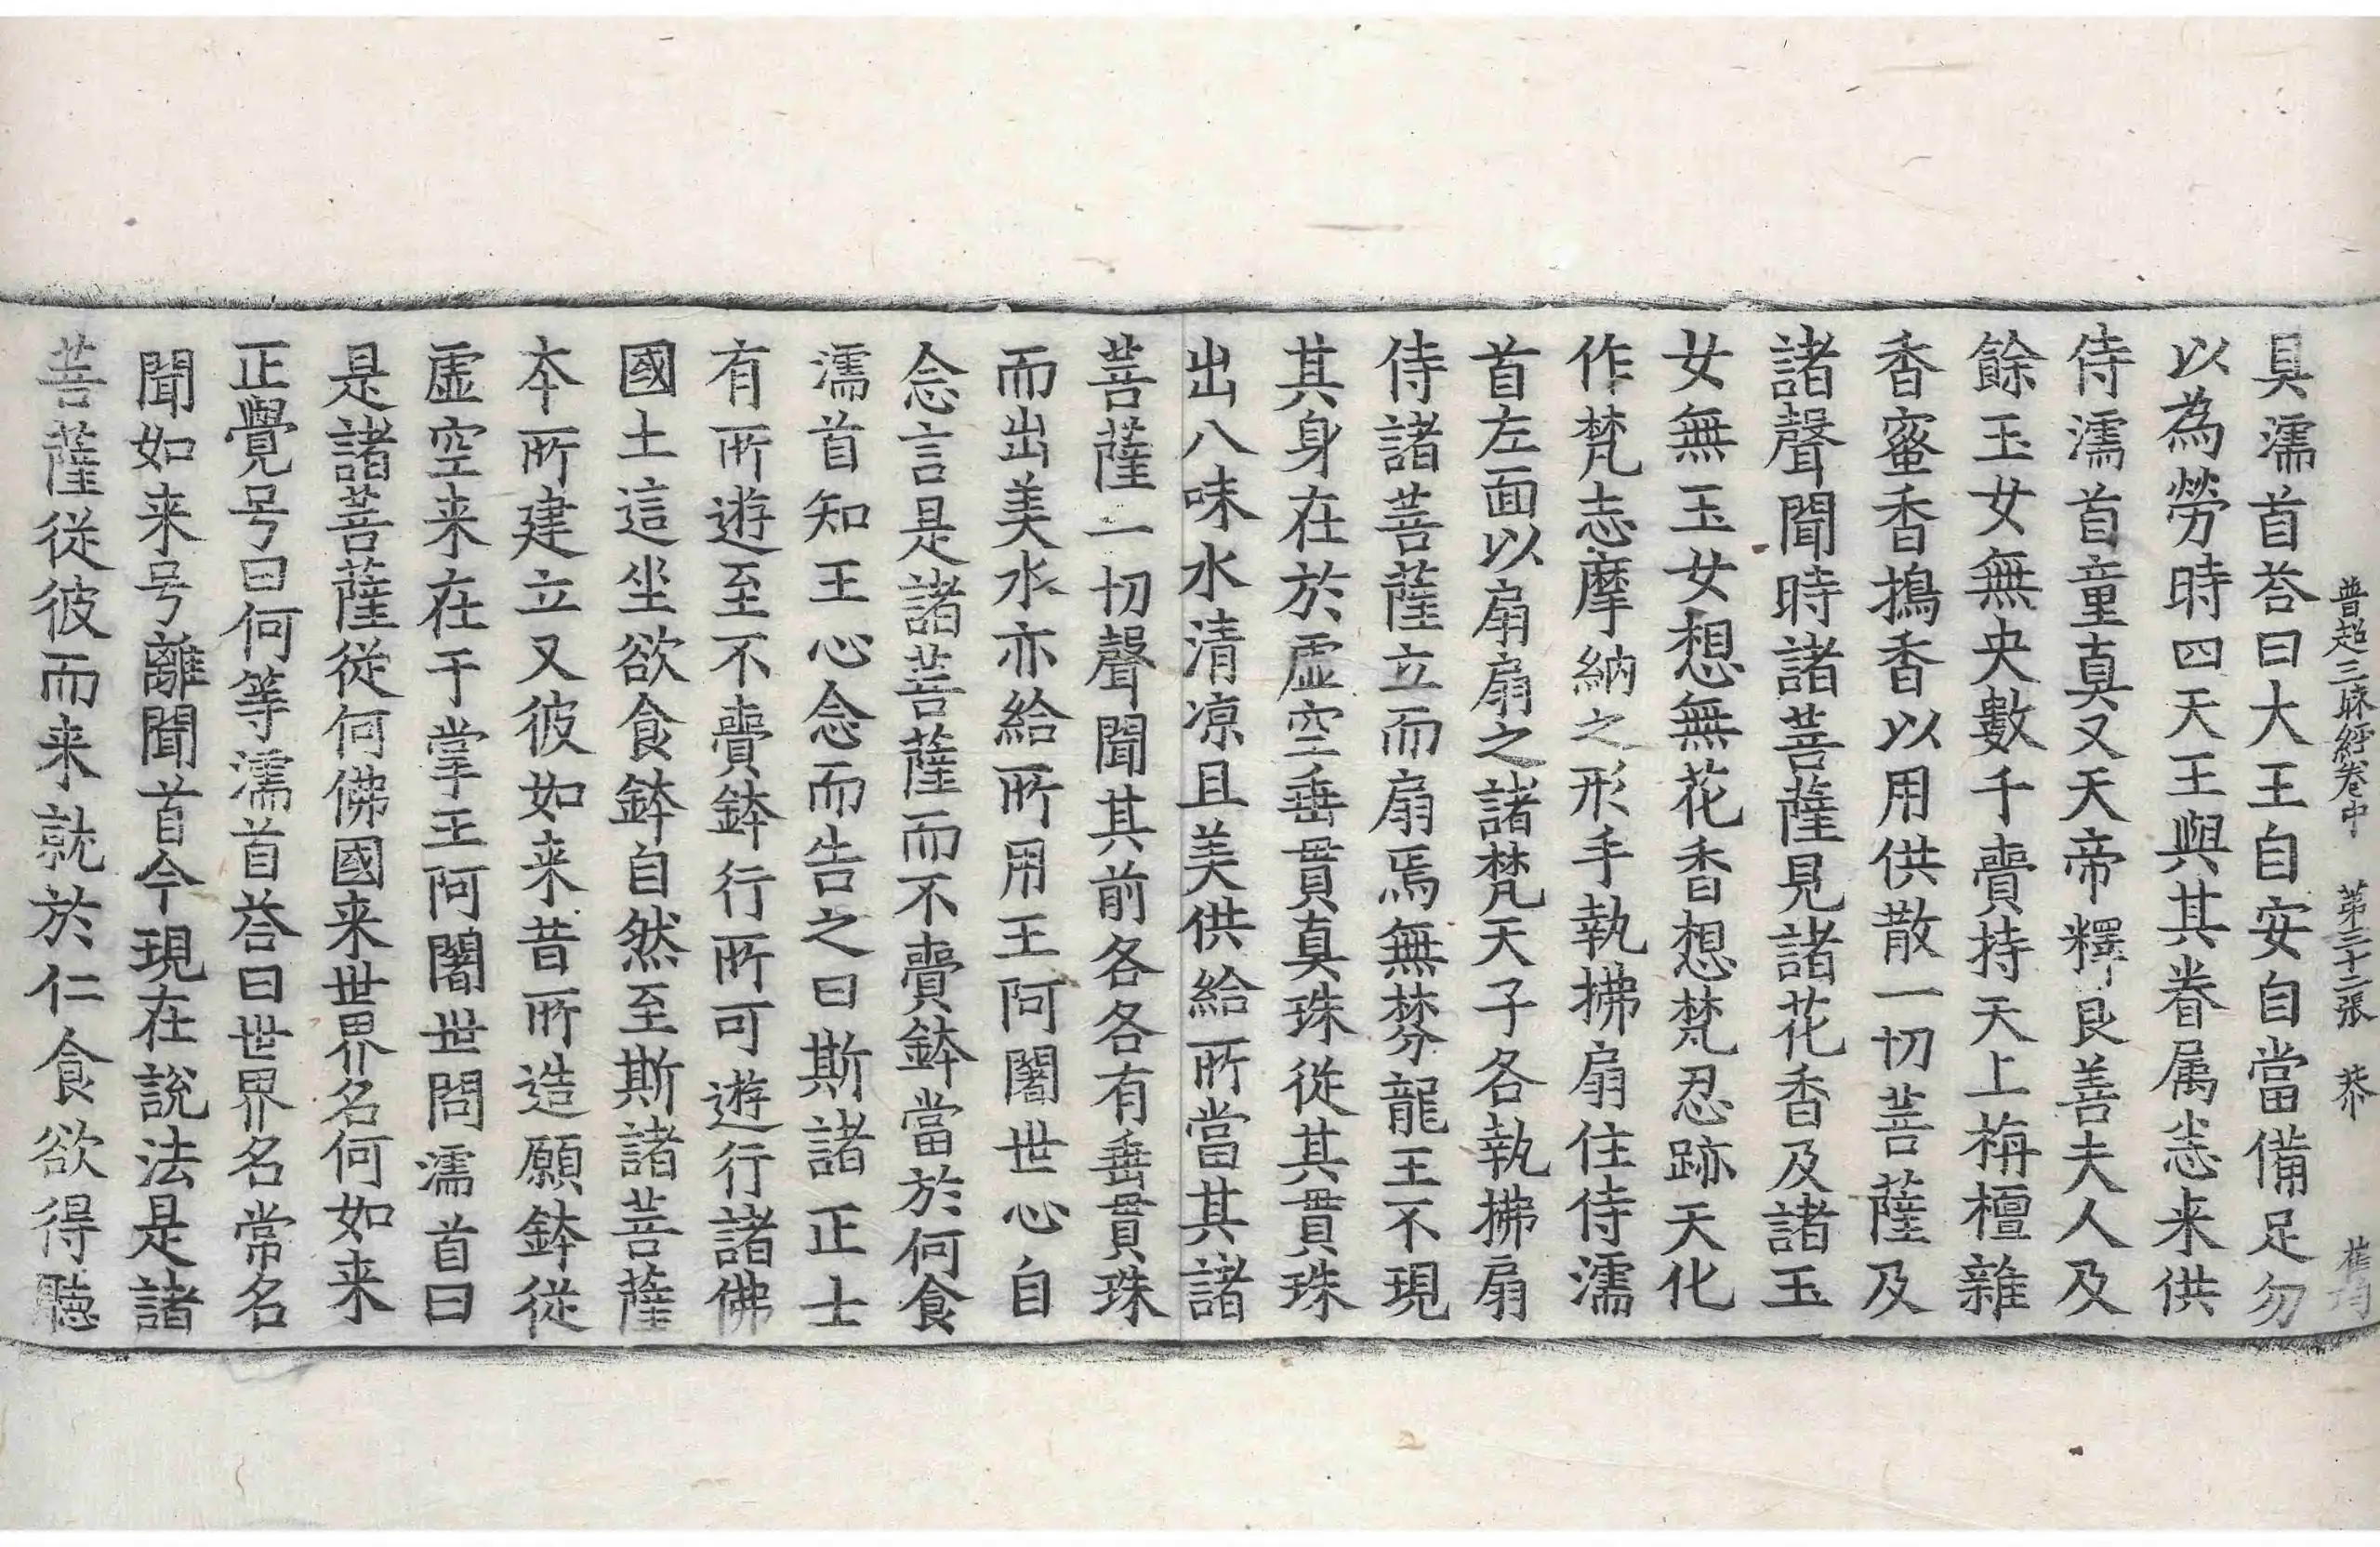 普超三昧經卷中　第三十二張　恭
具濡首荅曰大王自安自當備足勿
以為勞時四天王與其眷属悉来供
侍濡首童真又天帝釋良善夫人及
餘玉女無央數千賷持天上栴檀雜
香蜜香擣香以用供散一切菩薩及
諸聲聞時諸菩薩見諸花香及諸玉
女無玉女想無花香想梵忍跡天化
作梵志摩納之形手執拂扇住侍濡
首左面以扇扇之諸梵天子各執拂扇
侍諸菩薩立而扇焉無棼龍王不現
其身在於虛空垂貫真珠從其貫珠
出八味水清凉且美供給所當其諸
菩薩一切聲聞其前各各有垂貫珠
而出美水亦給所用王阿闍世心自
念言是諸菩薩而不賷鉢當於何食
濡首知王心念而告之曰斯諸正士
有所遊至不賷鉢行所可遊行諸佛
國土這坐欲食鉢自然至斯諸菩薩
本所建立又彼如来昔所造願鉢從
虛空来在于掌王阿闍世問濡首曰
是諸菩薩從何佛國来世界名何如来
正覺号曰何等濡首荅曰世界名常名
聞如来号離聞首今現在說法是諸
菩薩從彼而来就於仁食欲得聽